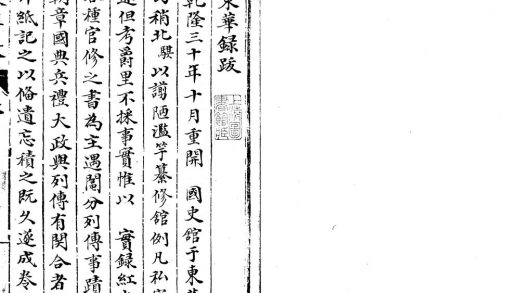 東華録跋
乾隆三十年十月重開 國史舘于東華
稍北騏以謭陋濫竽纂修舘例凡私家
述但考爵里不採事實惟以 實録紅
各種官修之書為主遇閣分列傳事蹟
朝章國典兵禮大政與列傳有関合者
片紙記之以備遺忘積之既久遂成卷
上海圖書館藏